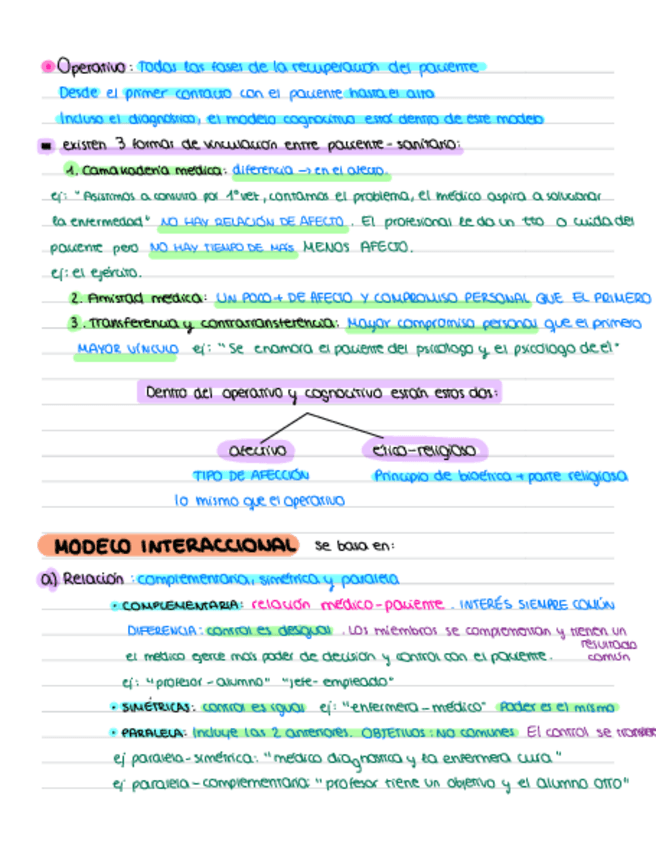 Operativo: Todas las fases de la recuperación del paciente
Desde el primer contacto con el paciente hasta el alta
Incluso el diagnóstico, el modelo cognocitivo está dentro de este modelo
existen 3 formas de vinculación entre paciente-sanitario:
1. Camaradería médica: diferencia → en el afecto.
ej: "Asistimos a consulta por 1ª vez, contamos el problema, el médico aspira a solucionar
la enfermedad" NO HAY RELACIÓN DE AFECTO. El profesional le da un tto o cuida del
paciente pero NO HAY TIEMPO DE MÁS MENOS AFECTO.
ej: el ejército.
2. Amistad médica: UN POCO + DE AFECTO Y COMPROMISO PERSONAL QUE EL PRIMERO
3. Transferencia y contratransferencia: Mayor compromiso personal que el primero
MAYOR VÍNCULO ej: "Se enamora el paciente del psicólogo y el psicólogo de él"
Dentro del operativo y cognocitivo están estos dos:
afectivo ético-religioso
TIPO DE AFECCIÓN Principio de bioética + parte religiosa
lo mismo que el operativo
MODELO INTERACCIONAL se basa en:
a) Relación: complementaria, simétrica y paralela
• COMPLEMENTARIA: relación médico-paciente. INTERÉS SIEMPRE COMÚN
DIFERENCIA: control es desigual. Los miembros se complementan y tienen un
resultado
el médico ejerce más poder de decisión y control con el paciente. común
ej: "profesor-alumno" "jefe-empleado"
• SIMÉTRICAS: control es igual ej: "enfermera-médico" Poder es el mismo
• PARALELA: Incluye las 2 anteriores. OBJETIVOS: NO COMUNES El control se
ej paralela-simétrica: "médico diagnostica y la enfermera cura"
ej paralela-complementaria: "profesor tiene un objetivo y el alumno otro"